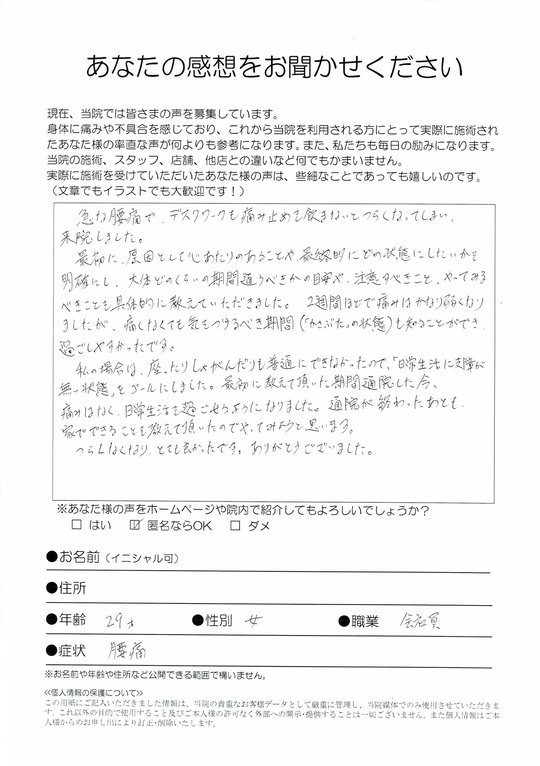 あなたの感想をお聞かせください
現在、当院では皆さまの声を募集しています。
身体に痛みや不具合を感じており、これから当院を利用される方にとって実際に施術され
たあなた様の率直な声が何よりも参考になります。また、私たちも毎日の励みになります。
当院の施術、スタッフ、店舗、他店との違いなど何でもかまいません。
実際に施術を受けていただいたあなた様の声は、些細なことであっても嬉しいのです。
（文章でもイラストでも大歓迎です！）
急な腰痛で、デスクワークも痛み止めを飲まないとつらくなってしまい、
来院しました。
最初に、原因として心あたりのあることや、最終的にどの状態にしたいかを
明確にし、大体どのくらいの期間通うべきかの目安や、注意すべきこと、やってみる
べきことを具体的に教えていただきました。 2週間ほどで痛みはかなり弱くなり
ましたが、痛くなくても気をつけるべき期間(「かさぶた」の状態)も知ることができ、
過ごしやすかったです。
私の場合は、座ったりしゃがんだりも普通にできなかったので、「日常生活に支障が
無い状態」をゴールにしました。最初に教えて頂いた期間通院した今、
痛みはなく、日常生活を過ごせるようになりました。通院が終わったあとも、
家でできることも教えて頂いたのでやってみようと思います。
つらくなくなり、とても良かったです。ありがとうございました。
※あなた様の声をホームページや院内で紹介してもよろしいでしょうか？
□ はい ☑ 匿名ならOK □ ダメ
●お名前（イニシャル可）
●住所
●年齢 29才 ●性別 女 ●職業 会社員
●症状 腰痛
※お名前や年齢や住所など公開できる範囲で構いません。
≪個人情報の保護について≫
この用紙にご記入いただきました情報は、当院の貴重なお客様データとして厳重に管理し、当院媒体でのみ使用させていただきま
す。これ以外の目的で使用すること及びご本人様の許可なく外部への開示・提供することは一切ございません。また個人情報はご本
人様からのお申し出により訂正・削除いたします。